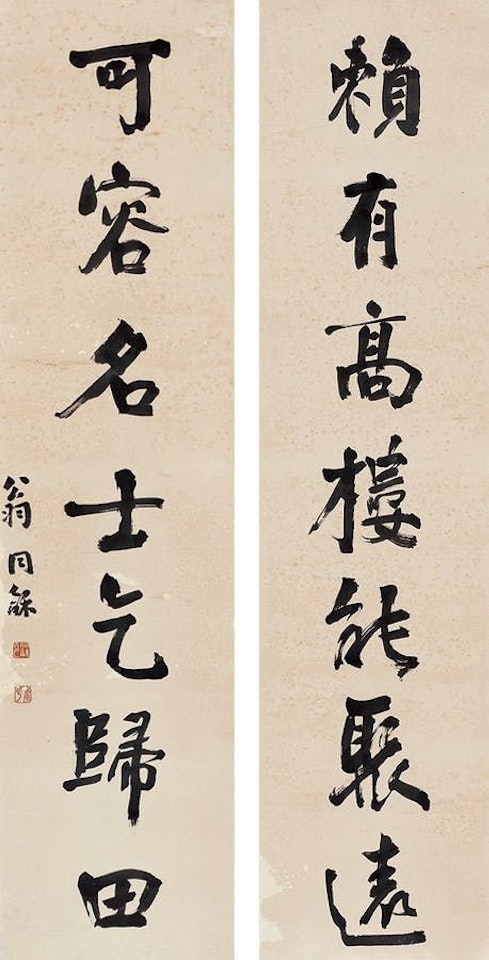 賴有高樓能聚遠
可容名士乞歸田
翁同龢